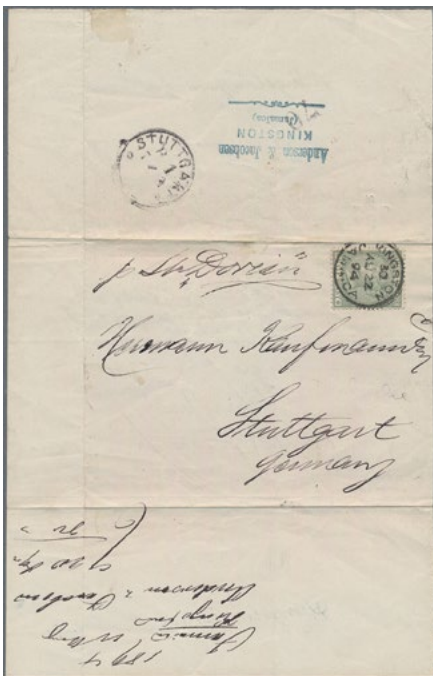 Anderson & Jacobsen
KINGSTON
(Jamaica)
STUTTGART
KINGSTON
AU 22
94
JAMAICA
p Str "Dorian"
Hermann Kaufmann Esq
Stuttgart
Germany
1894
Jamaica
Kingston
Anderson & Jacobsen